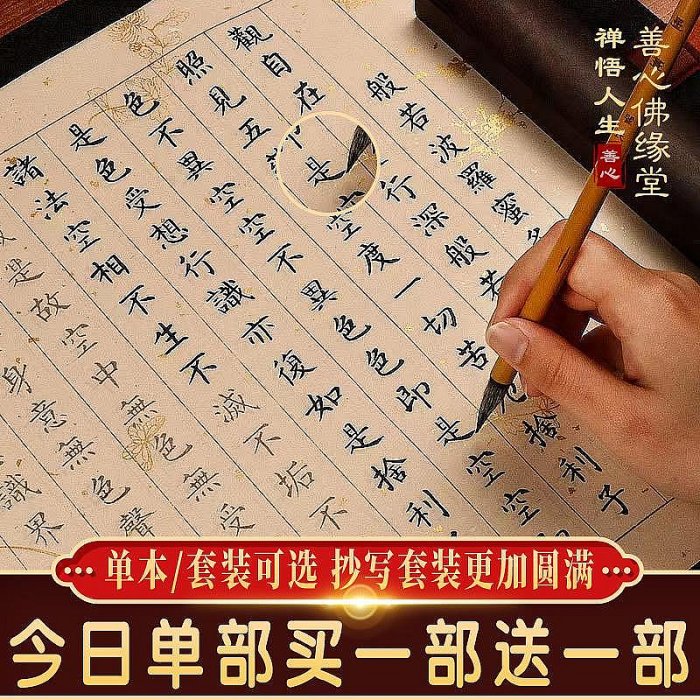 善心佛缘堂
禅悟人生
善心
般若波羅蜜
觀自在
行深般若
照見五
是空度一切苦厄捨利子
色不異空空不異色色即是空空
是色受想行識亦復如是捨利
諸法空相不生不滅不垢不
是故空中無色無受
身意無色聲
識界
单本/套装可选 抄写套装更加圆满
今日单部买一部送一部